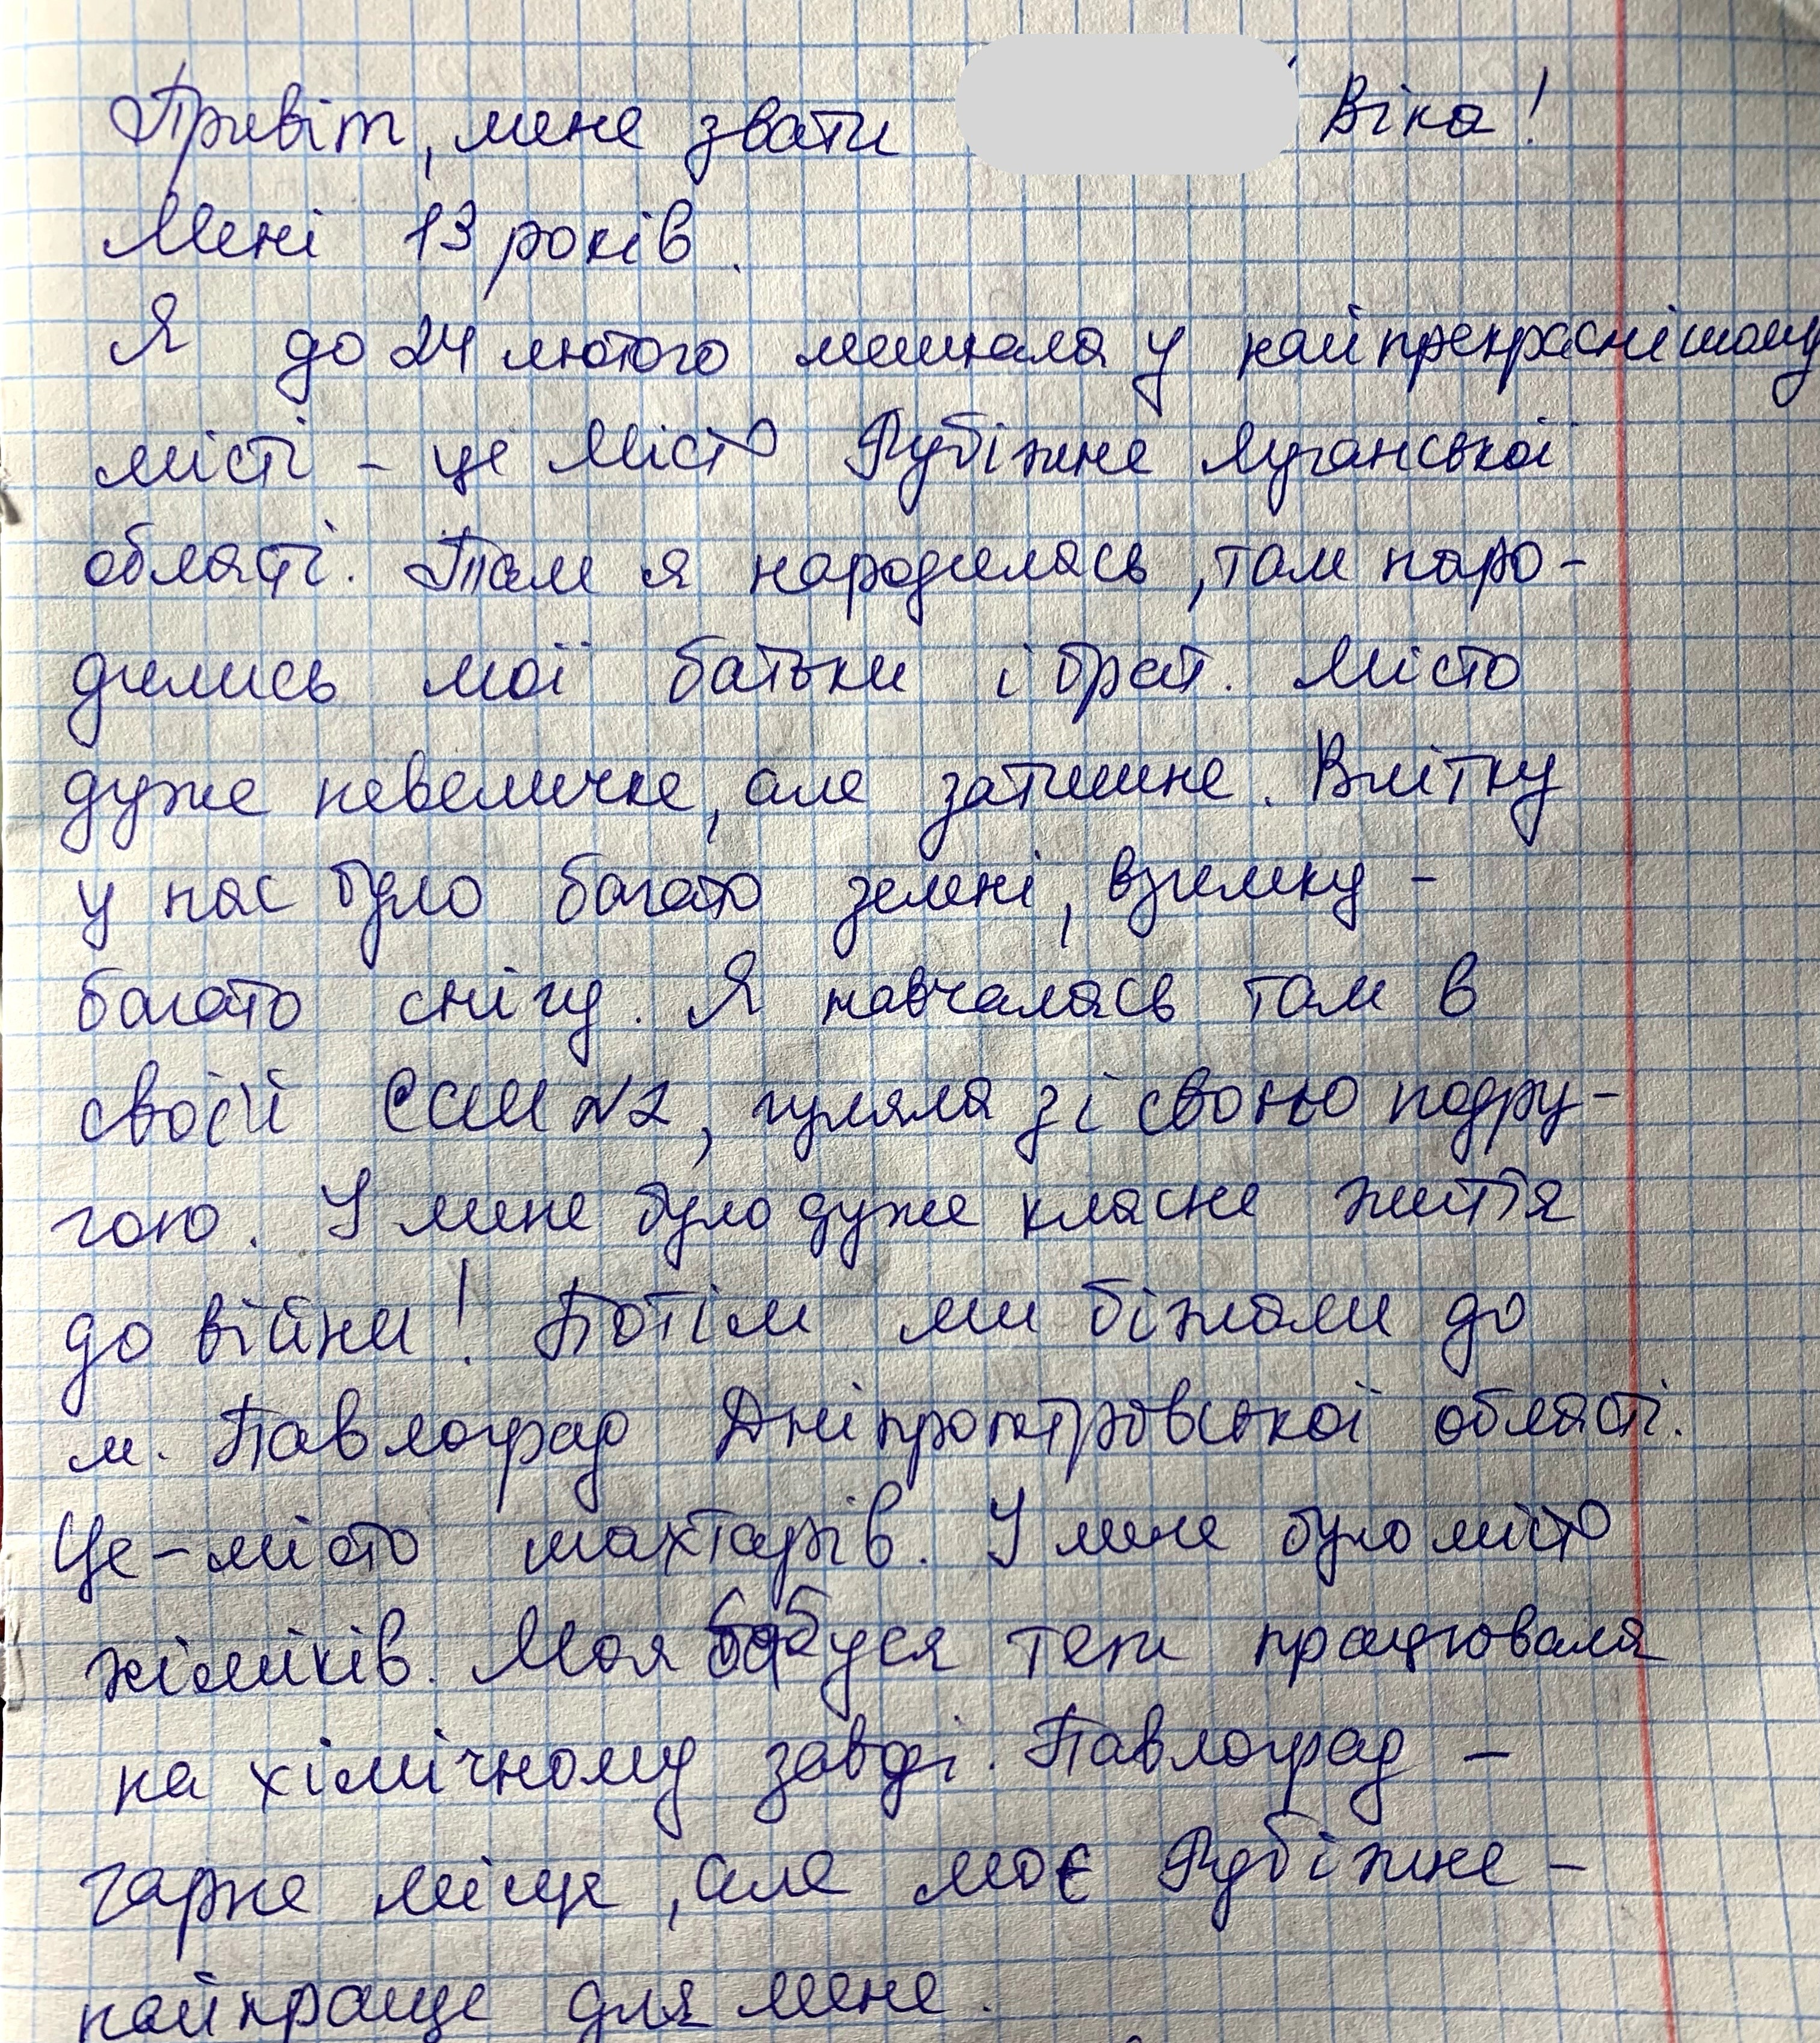 Привіт, мене звати Віка!
Мені 13 років.
Я до 24 лютого мешкала у найпрекраснішому
місті - це місто Рубіжне Луганської
області. Там я народилась, там наро-
дились мої батьки і брат. Місто
дуже невеличке, але затишне. Влітку
у нас було багато зелені, взимку -
багато снігу. Я навчалась там в
своїй СЗШ №2, гуляла зі своєю подру-
гою. У мене було дуже класне життя
до війни! Потім ми біжали до
м. Павлоград Дніпропетровської області.
Це - місто шахтарів. У мене було місто
хіміків. Моя бабуся теж працювала
на хімічному заводі. Павлоград -
гарне місце, але моє Рубіжне -
найкраще для мене.